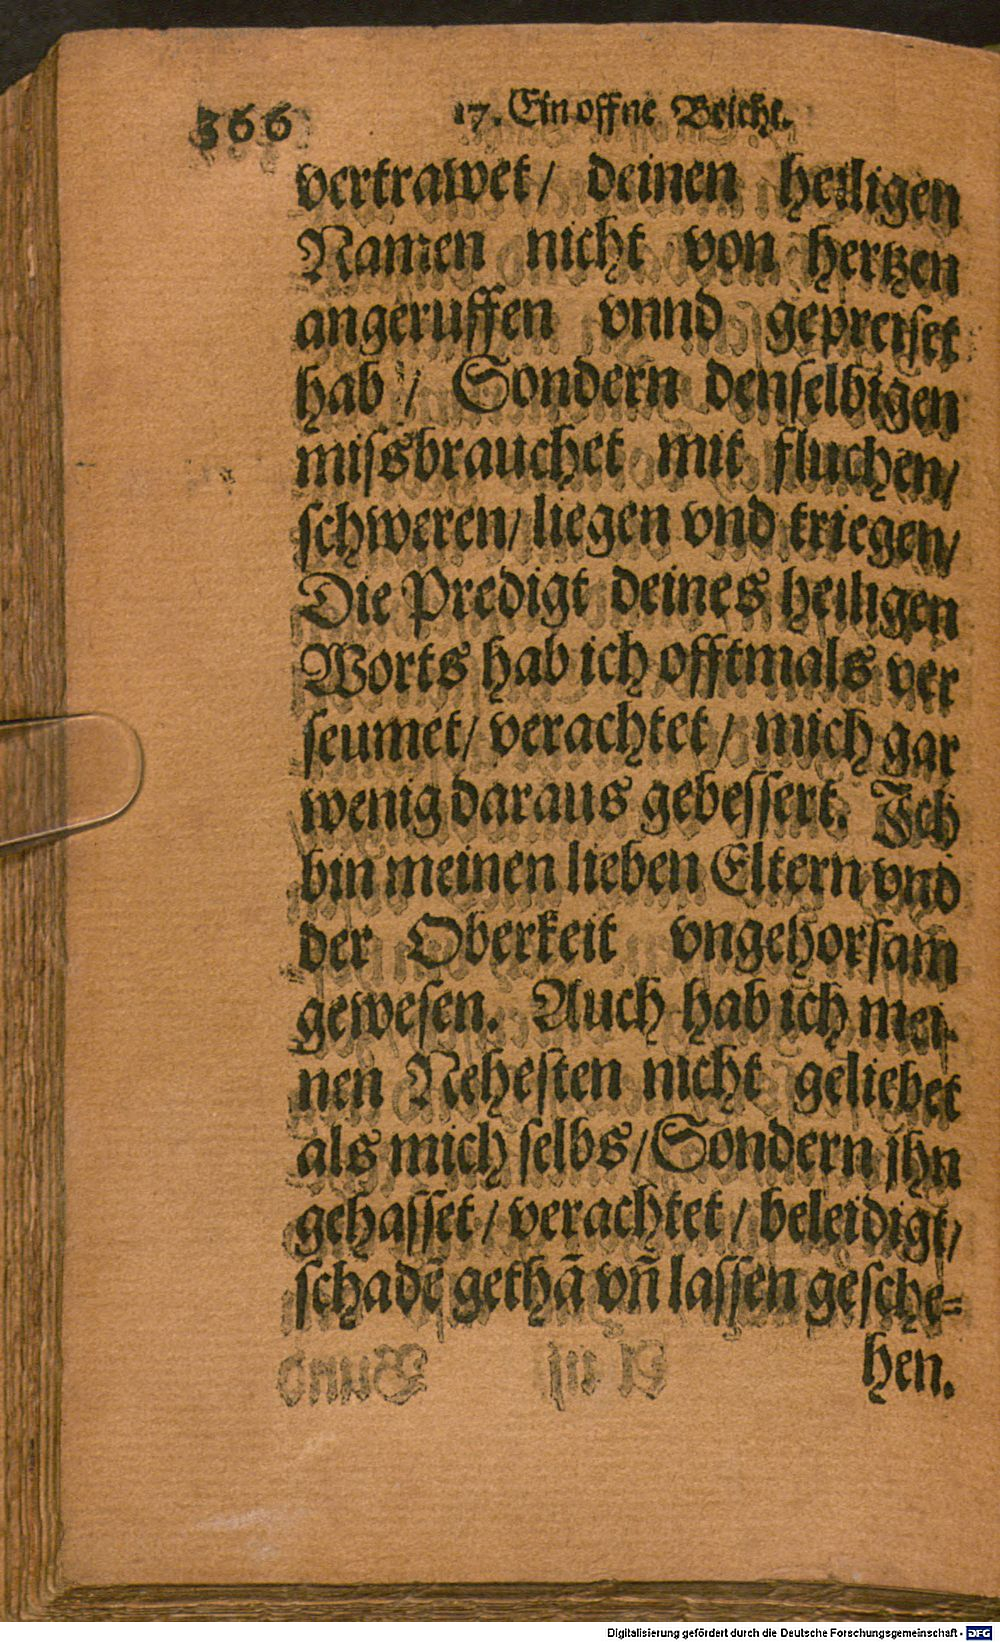 366
17. Ein offne Beicht.
vertrawet / deinen heiligen
Namen nicht von hertzen
angeruffen vnnd gepreiset
hab / Sondern denselbigen
missbrauchet mit fluchen /
schweren / liegen vnd triegen /
Die Predigt deines heiligen
Worts hab ich offtmals ver
seumet / verachtet / mich gar
wenig daraus gebessert. Ich
bin meinen lieben Eltern vnd
der Oberkeit vngehorsam
gewesen. Auch hab ich mei-
nen Nehesten nicht geliebet
als mich selbs / Sondern jhn
gehasset / verachtet / beleidigt /
schadē gethā vñ lassen gesche-
hen.
Digitalisierung gefördert durch die Deutsche Forschungsgemeinschaft - DFG